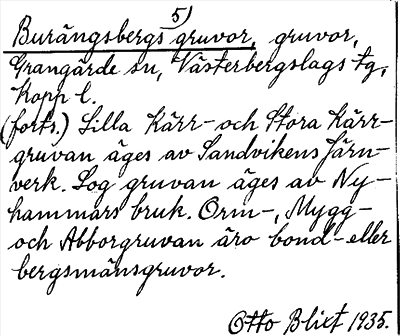 5)
Burängsbergs gruvor, gruvor,
Grangärde sn, Västerbergslags tg,
Kopp l.
(forts.) Lilla Kärr- och Stora Kärr-
gruvan äges av Sandvikens Järn-
verk. Log gruvan äges av Ny-
hammars bruk. Orm-, Mygg-
och Abborgruvan äro bond- eller
bergsmansgruvor.
Otto Blixt 1935.